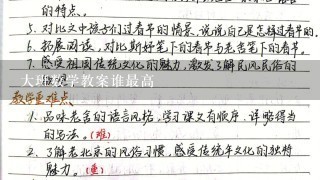 的特点。
5. 对比文中孩子们过春节的情景,说说自己是怎样过春节的。
6. 拓展阅读,对比斯妤笔下的春节与老舍笔下的春节。
7. 感受祖国传统文化的魅力,激发了解民风民俗的
大班数学教案谁最高
教学重难点
1. 品味老舍的语言风格,学习课文有顺序、详略得当
的写法。(难)
2. 了解老北京的风俗习惯,感受传统年文化的独特
魅力。(重)